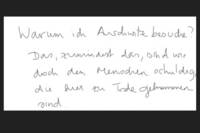 Warum ich Auschwitz besuche?
Das, zumindest das, sind wir
doch den Menschen schuldig,
die hier zu Tode gekommen
sind.